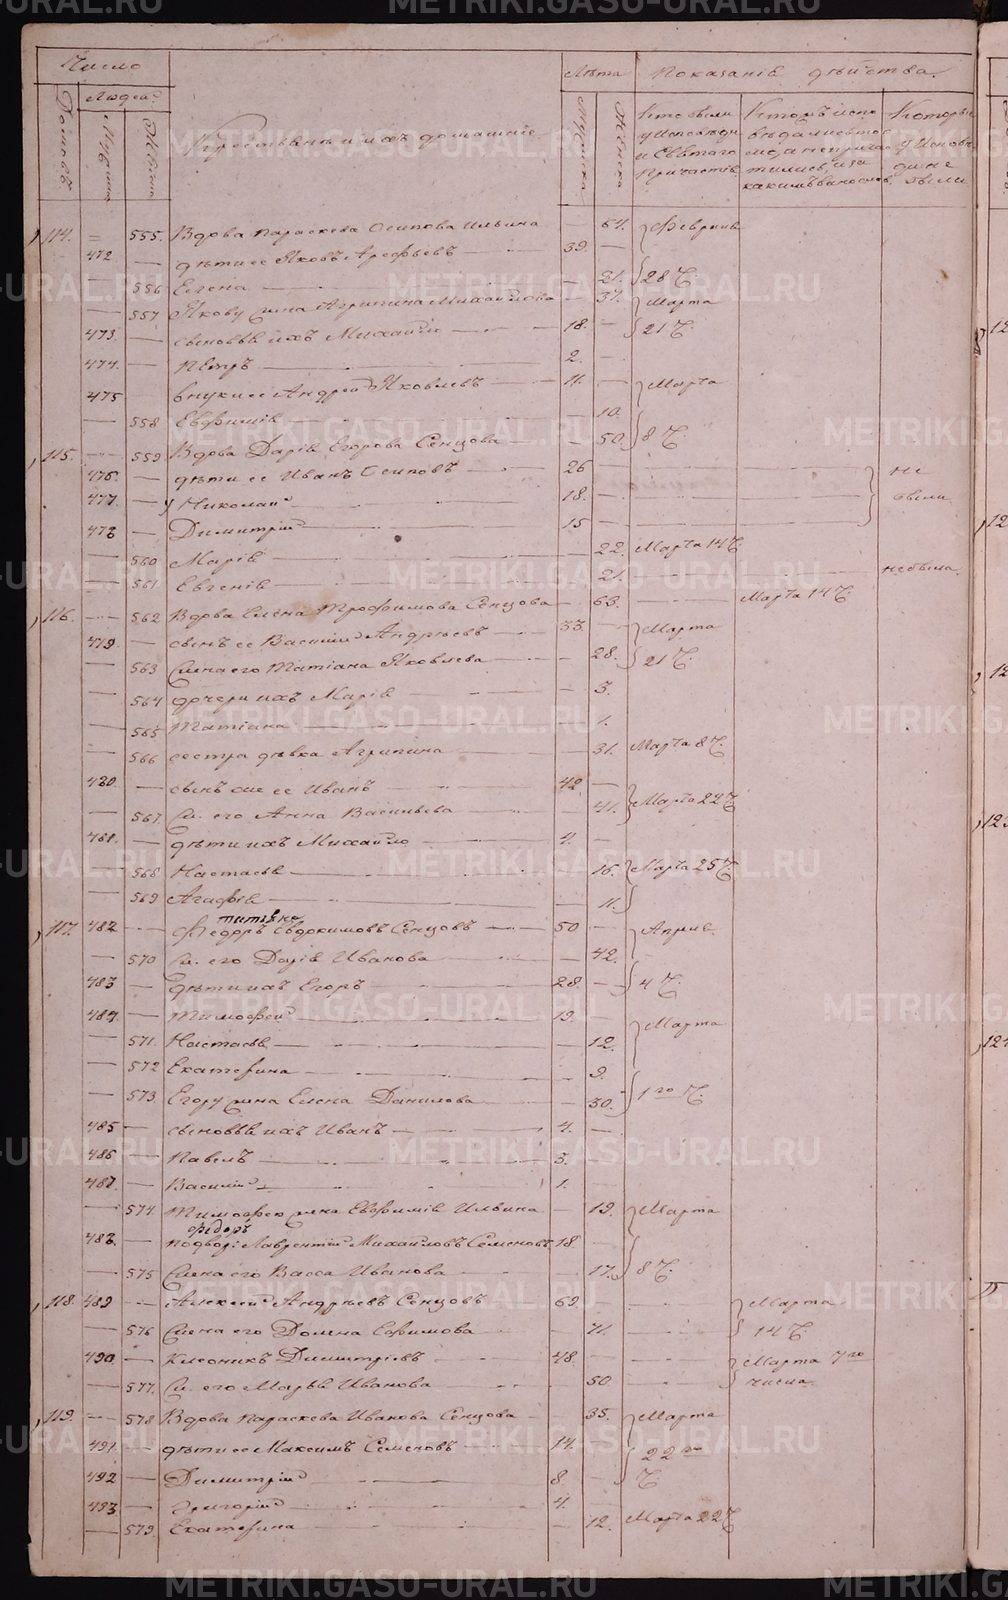 Число
Лѣта Показанiе дѣйства
Людей
Домовъ
Мужеска
Женска
Крестьяны и ихъ домашнiе
Мужеска
Женска
Кто были у Исповѣди и Святаго Причастiя
Которы у Исповѣди не были
114. 555. Вдова Параскева Осипова Ильина 64. Февраля
472 дѣти ее Яковъ Арефьевъ 39.
556 Елена 21. 28 Ч.
557 Якову жена Агрипина Михайлова 37. Марта
473. сыновья ихъ Михайло 18. 21 Ч.
474. Петръ 2.
475 внуки ее Андрей Яковлевъ 11. Марта
558 Евфимiя 10.
115. 559 Вдова Дарiя Егорова Сенцова 50. 8 Ч.
476. дѣти ее Иванъ Осиповъ 26 не
477. Николай 18. были
478 Димитрiй 15
560 Марiя 22. Марта 14 Ч.
561 Евгенiя 21. небыла
116. 562 Вдова Елена Трофимова Сенцова 63. Марта 14 Ч.
479. сынъ ее Василiй Андрѣевъ 33. Марта
563 жена его Татiана Яковлева 28. 21 Ч.
564 дочери ихъ Марiя 3.
565 Татiана 1.
566 сестра дѣвка Агрипина 31. Марта 8 Ч.
480. сынъ ее Иванъ 42
567. ж. его Анна Васильева 41. Марта 22 Ч
481. дѣти ихъ Михайло 4.
568 Настасья 16. Марта 25 Ч
569 Агафiя 11.
117. 482 Федоръ Евдокимовъ Сенцовъ 50 Април.
570 ж. его Дарiя Иванова 42.
483 дѣти ихъ Егоръ 28. 4 Ч.
484. Тимофей 19. Марта
571. Настасья 12.
572 Екатерина 9.
573. Егору жена Елена Данилова 30. 1го Ч.
485 сыновья ихъ Иванъ 4.
486 Павелъ 3.
487. Василiй 1.
574. Тимофею жена Евфимiя Ильина 19. Марта
Федоръ
488. Лаврентiй Михайловъ Семеновъ 18.
575 жена его Васса Иванова 17. 8 Ч.
118. 489 Алексей Андрѣевъ Сенцовъ 69. Марта
576 жена его Домна Ефимова 71. 14 Ч.
490 Димитрiевъ 48. Марта 7го
577. ж. его Марья Иванова 50. числа
119. 578 Вдова Параскева Иванова Сенцова 35. Марта
491. дѣти ее Максимъ Семеновъ 14. 22
492 Димитрiй 8. Ч.
493 Григорiй 4.
579. Екатерина 12. Марта 22 Ч
METRIKI.GASO-URAL.RU